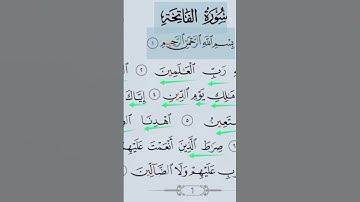 سُورَةُ الفَاتِحَةِ
بِسْمِ ٱللَّهِ ٱلرَّحْمَٰنِ ٱلرَّحِيمِ ١
رَبِّ ٱلْعَٰلَمِينَ ٢
مَٰلِكِ يَوْمِ ٱلدِّينِ ٤ إِيَّاكَ
نَسْتَعِينُ ٥ ٱهْدِنَا
صِرَٰطَ ٱلَّذِينَ أَنْعَمْتَ عَلَيْهِمْ
عَلَيْهِمْ وَلَا ٱلضَّآلِّينَ